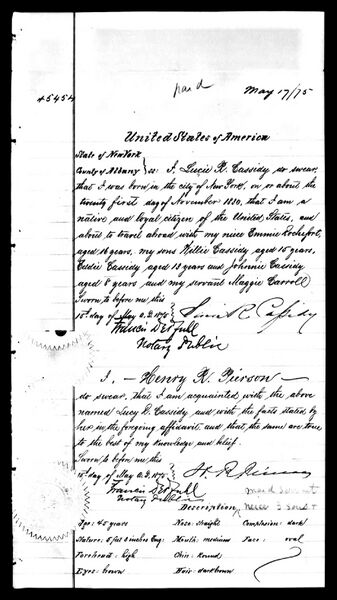 paid
May 17/75
45454
United States of America
State of New York
County of Albany } ss: I, Lucie R. Cassidy do swear,
that I was born in the city of New York, on or about the
twenty first day of November 1830, that I am a
native and loyal citizen of the United States, and
about to travel abroad with my niece Emmie Rochefort,
aged 16 years, my sons Willie Cassidy, aged 15 years,
Eddie Cassidy aged 13 years and Johnnie Cassidy
aged 8 years and my servant Maggie Carroll
Sworn to before me this
15th day of May A.D. 1875 Lucie R Cassidy
Notary Public
I, — Henry R. Pierson —
do swear, that I am acquainted with the above
named Lucy R. Cassidy, and with the facts stated by
her in the forgoing affidavit and that the same are true
to the best of my knowledge and belief.
Sworn to before me this
15th day of May A.D. 1875 H. R. Pierson
Notary Public
Description maid servant
niece 3 sons
Age: 45 years Nose: straight Complexion: dark
Stature: 5 feet 3 inches Eng: Mouth: medium Face: oval
Forehead: high Chin: Round
Eyes: brown Hair: dark brown